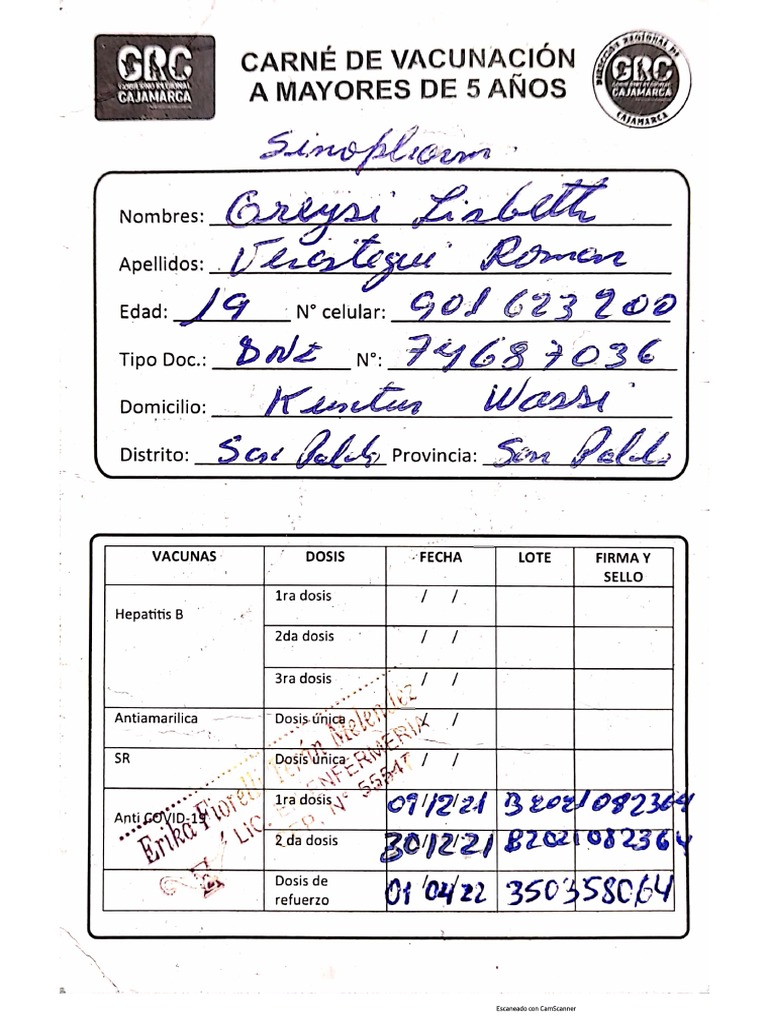 GRC
GOBIERNO REGIONAL
CAJAMARCA
CARNÉ DE VACUNACIÓN
A MAYORES DE 5 AÑOS
DIRECCION REGIONAL DE
GRC
GOBIERNO REGIONAL
CAJAMARCA
CAJAMARCA
Sinopharm
Nombres: Greysi Lisbeth
Apellidos: Verastegui Roman
Edad: 19 N° celular: 901 623 200
Tipo Doc.: DNI N°: 74687036
Domicilio: Kuntur Wassi
Distrito: San Pablo Provincia: San Pablo
VACUNAS DOSIS FECHA LOTE FIRMA Y SELLO
Hepatitis B 1ra dosis / /
2da dosis / /
3ra dosis / /
Antiamarilica Dosis única / /
SR Dosis única / /
Anti COVID-19 1ra dosis 09/12/21 B2021082364
2 da dosis 30/12/21 B2021082364
Dosis de refuerzo 01/04/22 350358064
Erika Fiorella Terán Melendez
LIC. ENFERMERIA
CEP. N° 55547
Escaneado con CamScanner